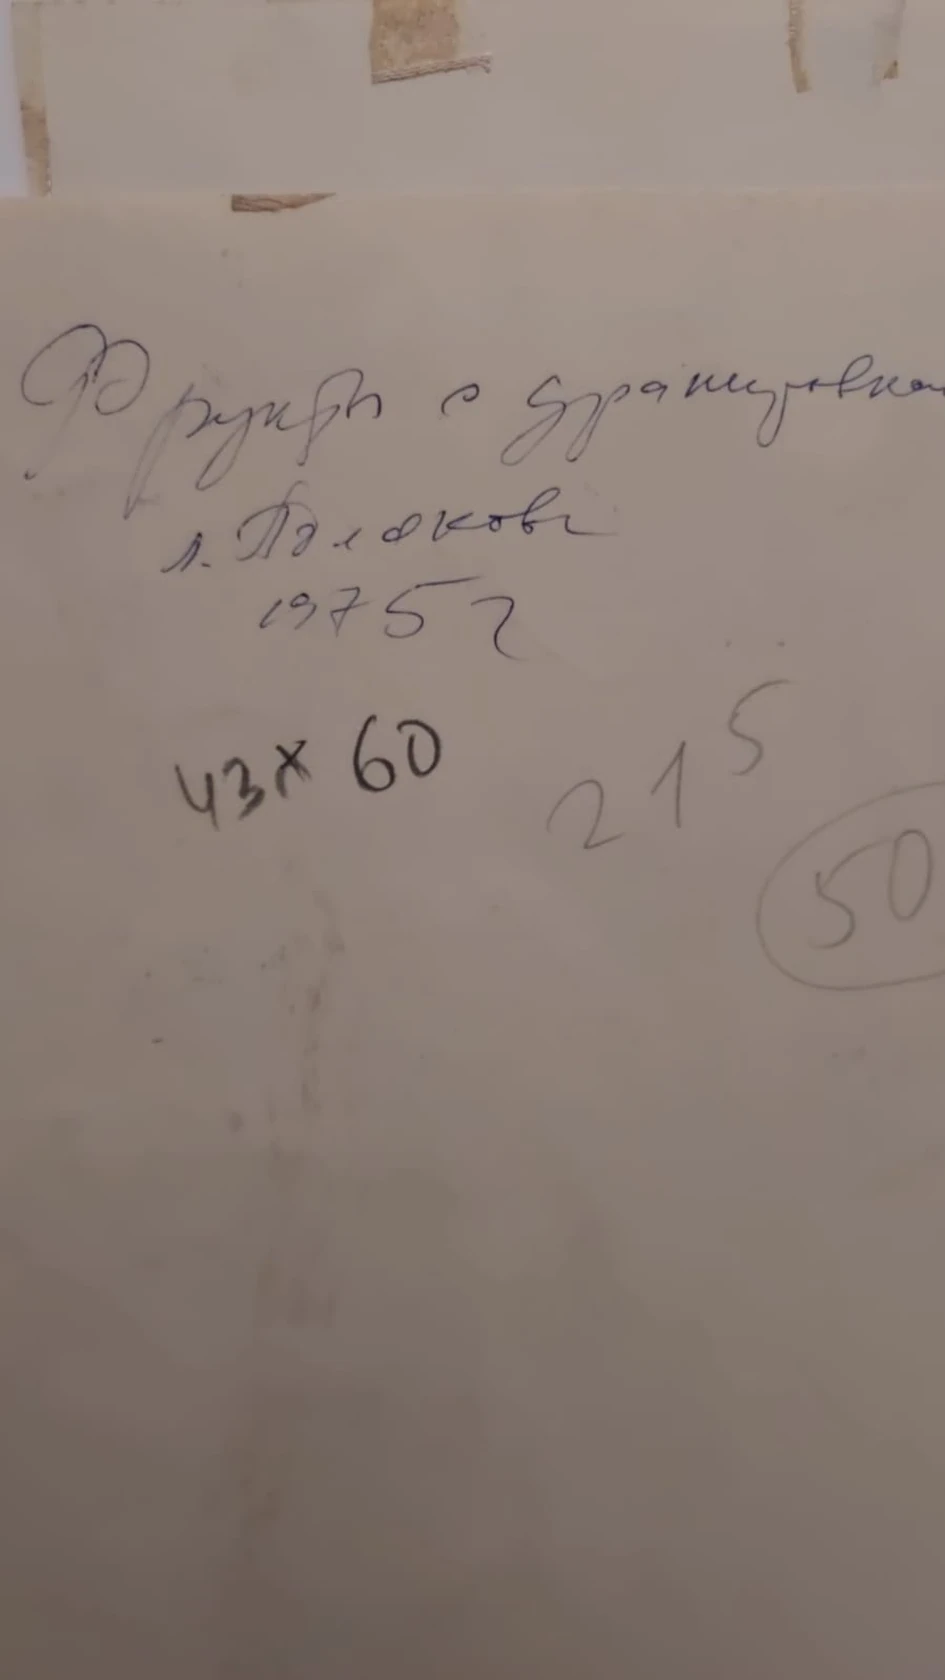 Фрукты с драпировкой
л. Поляков
1975 г
43 х 60
215
50